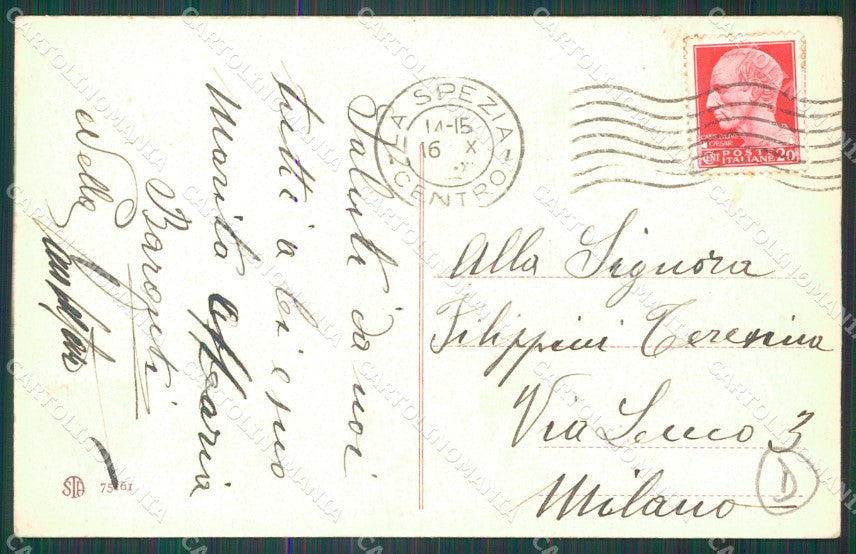 Saluti da noi
tutti a lei e suo
Marito
Maria
Baronti
Nella
LA SPEZIA
14-15
16 X
CENTRO
CAESAR
CENT POSTE 20
ITALIANE
Alla Signora
Filippini Teresina
Via Lecco 3
Milano
D
STA 75161
CARTOLINOMANIA